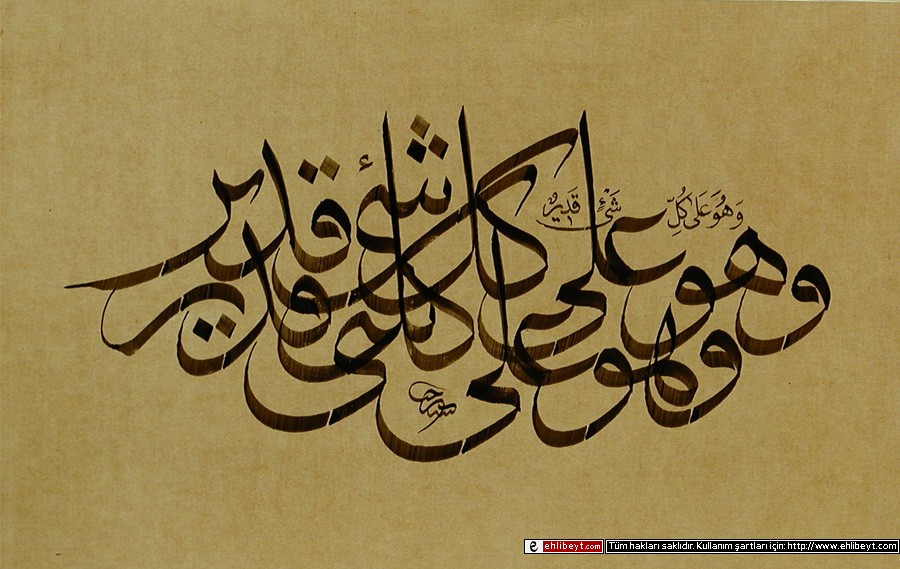 وهو على كل شئ قدير
وهو على كل شئ قدير
وَهُوَ عَلَى كُلِّ شَئٍ قَدِيرٌ
ehlibeyt.com Tüm hakları saklıdır. Kullanım şartları için: http://www.ehlibeyt.com